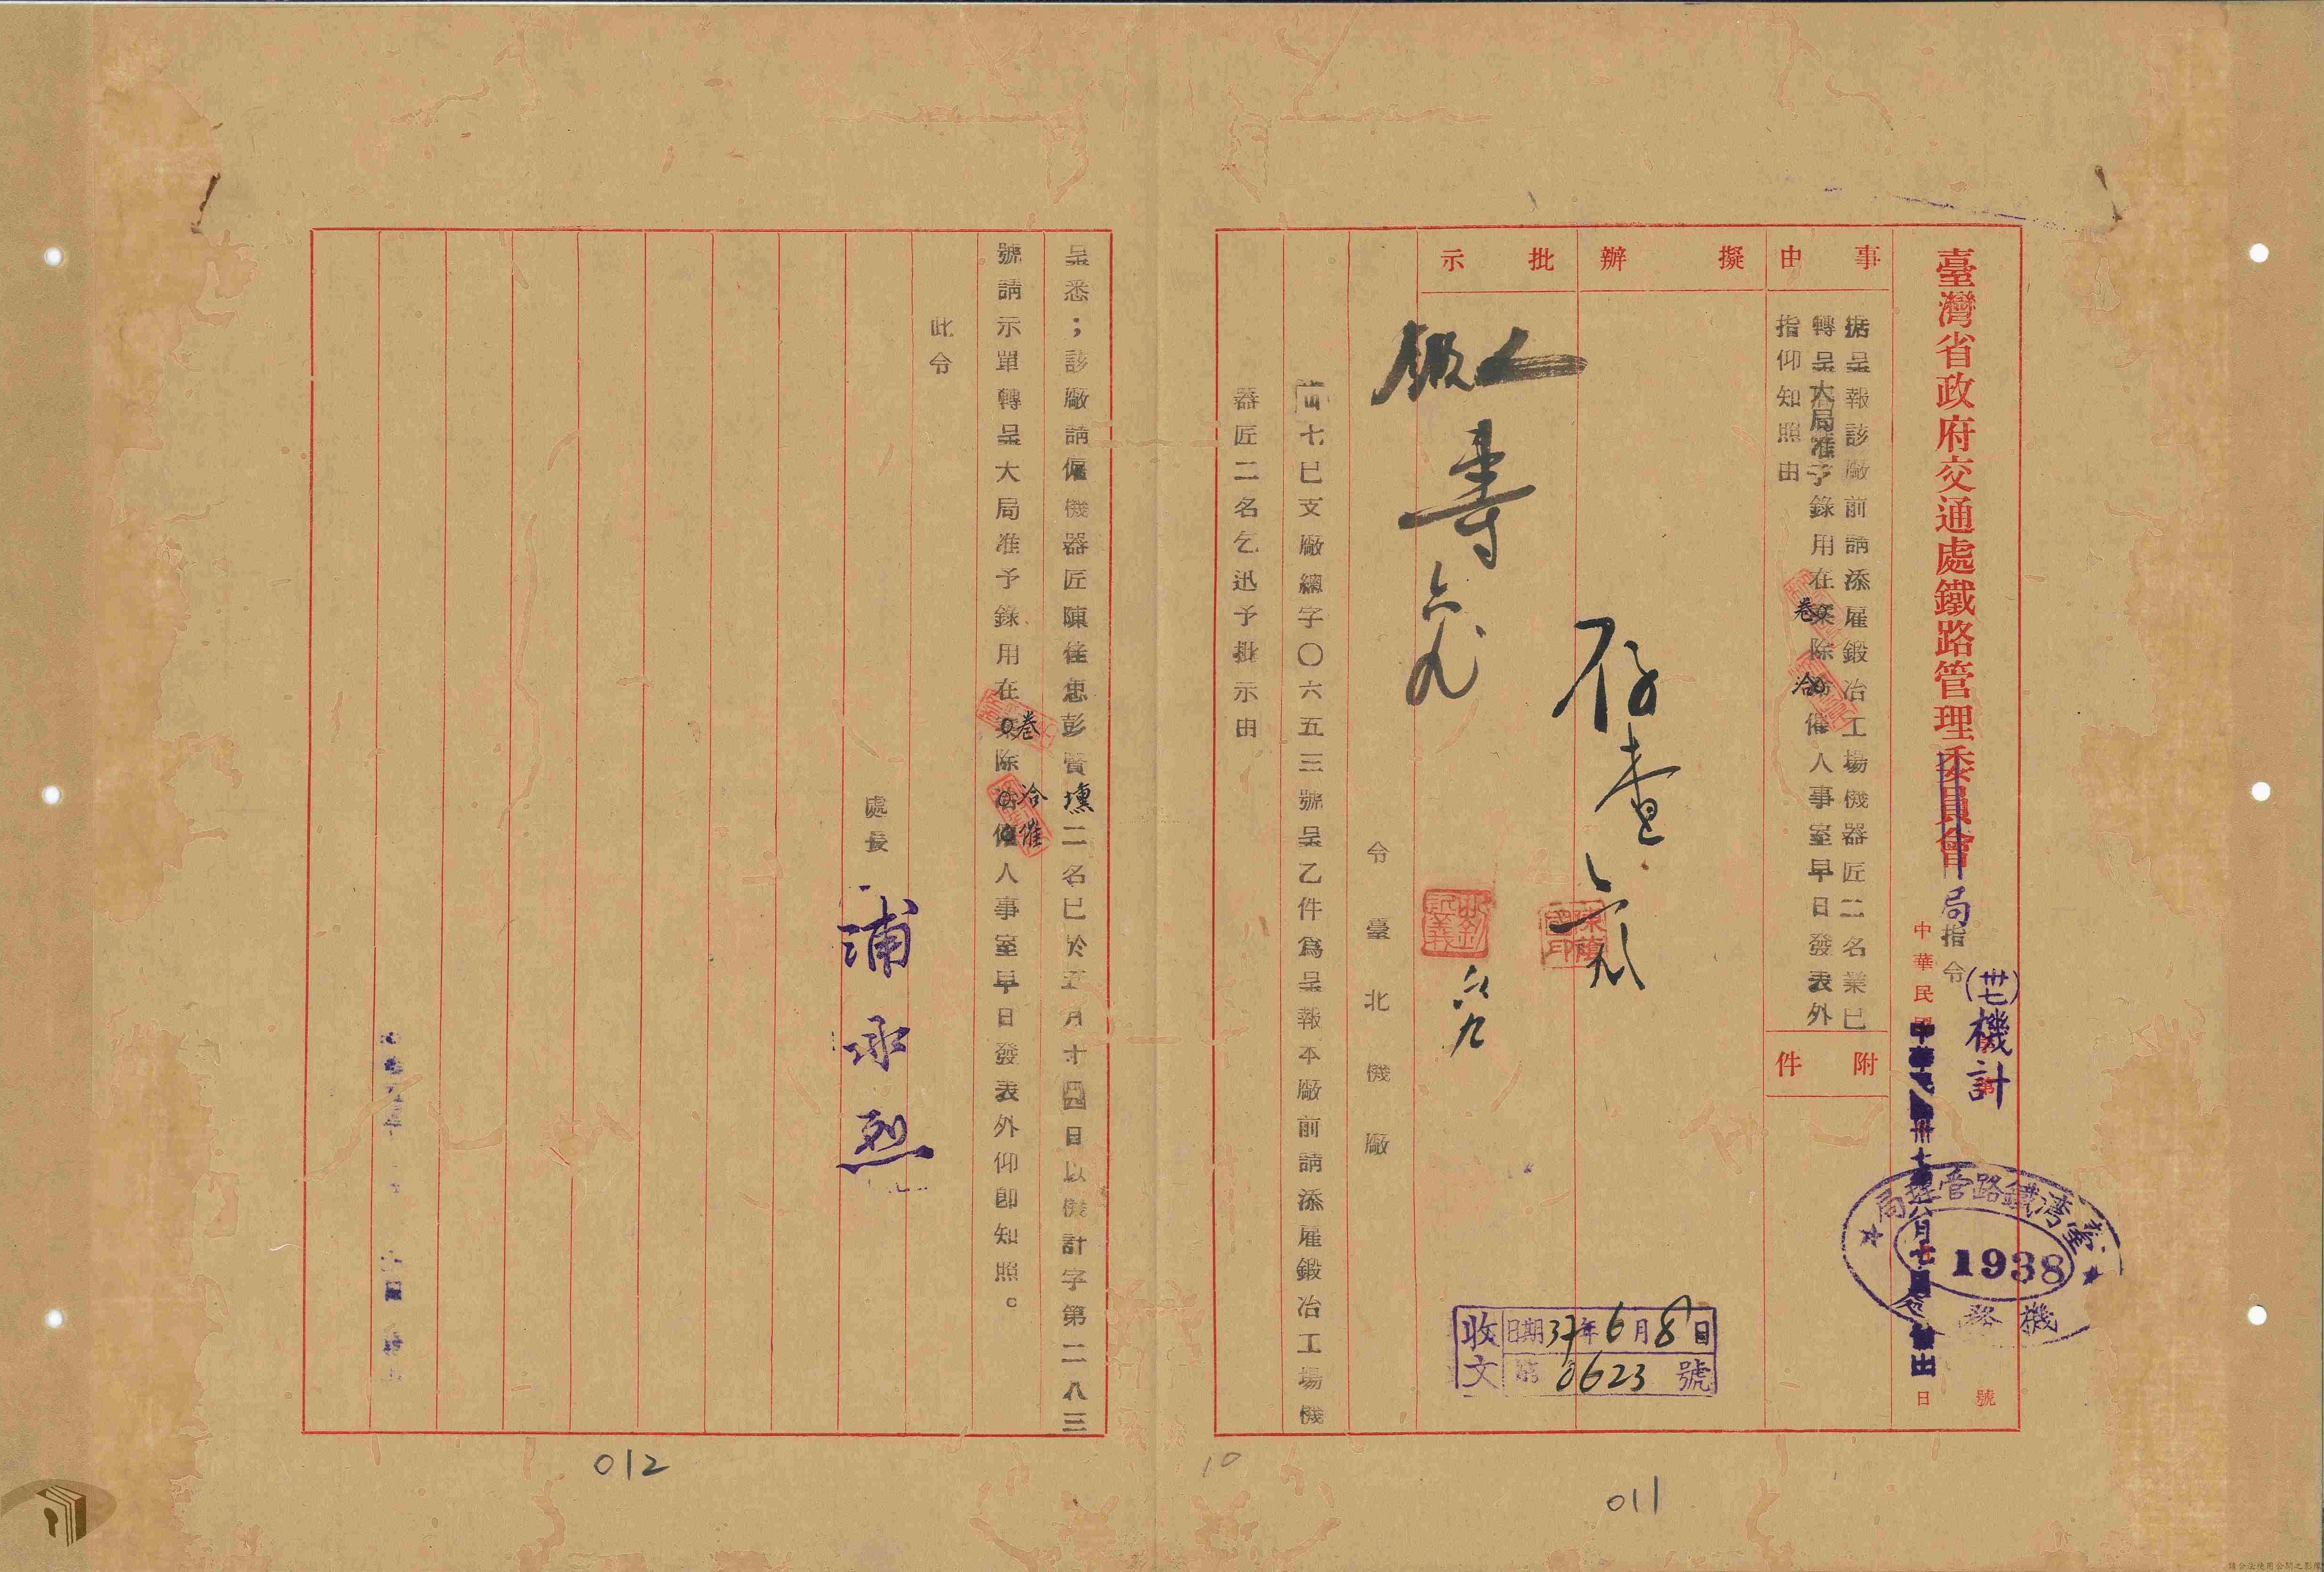 臺灣省政府交通處鐵路管理委員會局指令
(卅七)機計
第
號
中華民國卅七年六月七日
發出
日
臺灣鐵路管理局
1938
機務
事由
据呈報該廠前請添雇鍛冶工場機器匠二名業已
轉呈大局准予錄用在卷除洽催人事室早日發表外
指仰知照由
附件
擬辦
存查
陳
國印
批示
鍛人
壽
六九
六九
收文
日期37年6月8日
第0623號
令臺北機廠
卅七巳支廠總字〇六五三號呈乙件為呈報本廠前請添雇鍛冶工場機
器匠二名乞迅予批示由
呈悉;該廠請僱機器匠陳佳忠彭寶壎二名已於五月十四日以機計字第二八三
號請示單轉呈大局准予錄用在卷除洽催人事室早日發表外仰卽知照。
此令
處長 浦承烈
012
10
011